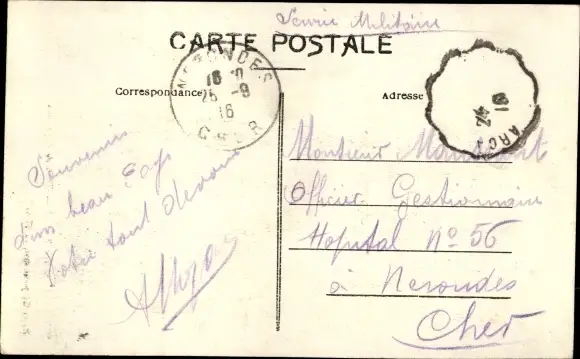 Servie Militaire
CARTE POSTALE
Correspondance
Adresse
NERONDES
16
25 -9
16
CHER
24
ARC
Souvenirs
d'un beau Pays
Votre tout dévoué
Monsieur
Officier Gestionnaire
Hopital No 56
à Nerondes
Cher